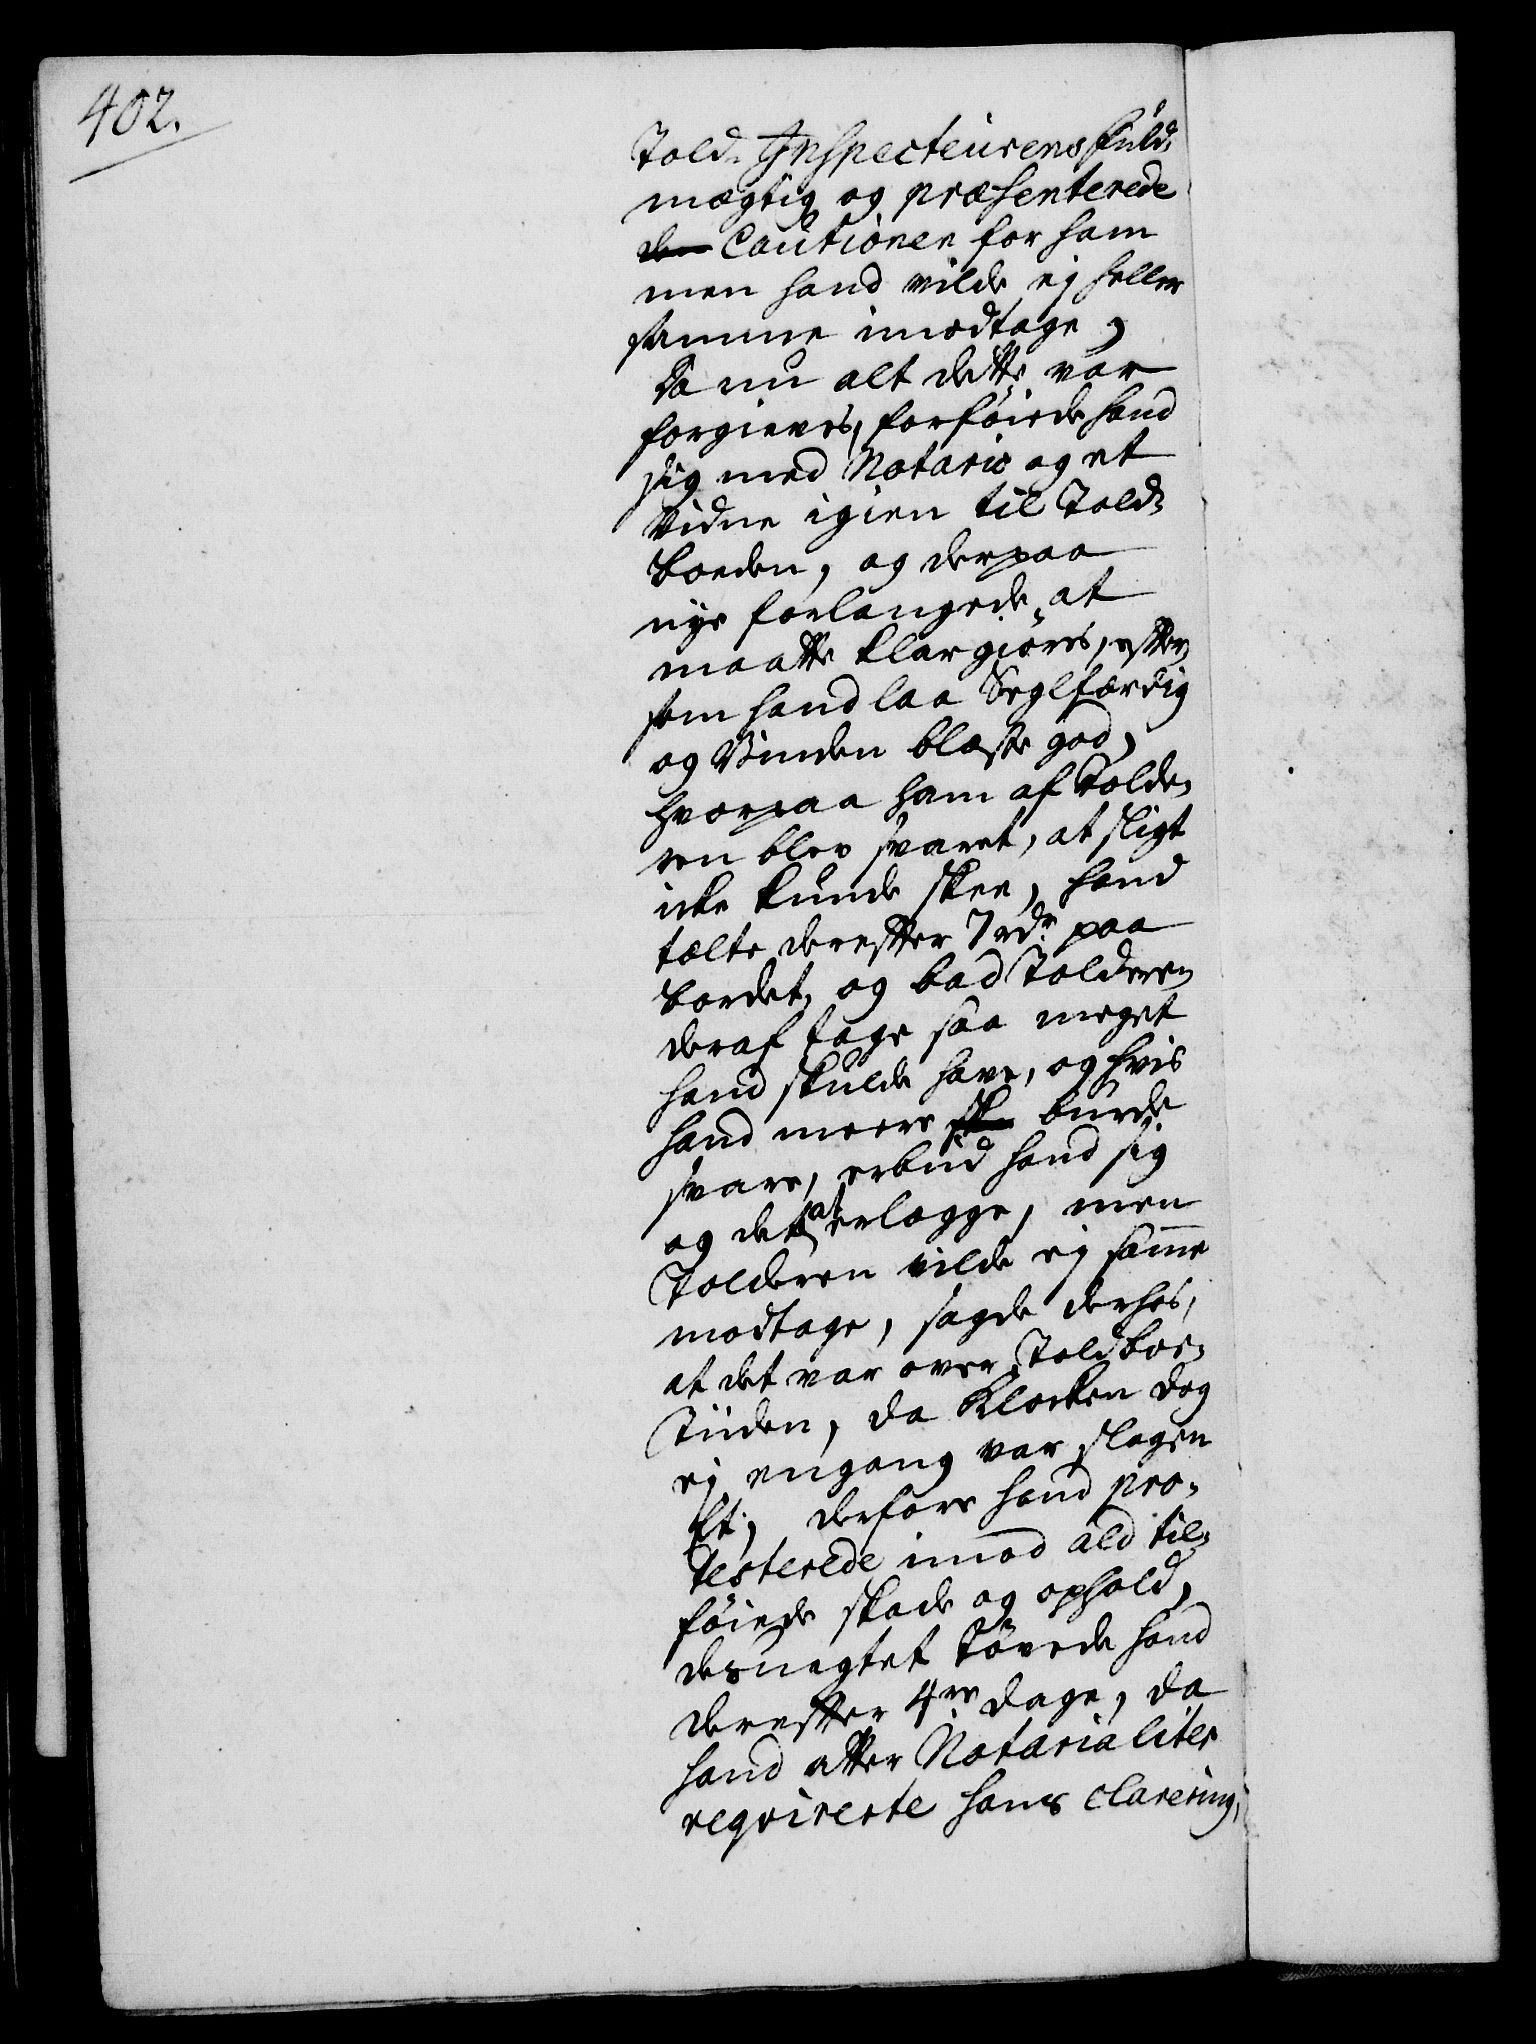 402.
Told-Inspecteurens fuld-
mægtig og præsenterede
den Cautionen for ham
men hand vilde ej heller
samme imodtage,
Da nu alt dette var
forgieves, forföiede hand
sig med Notario og et
Vidne igien til Told-
boeden, og derpaa
nye forlangede, at
maatte klargiöres, efter
som hand laa Seglfærdig
og Vinden blæste god,
hvorpaa ham af Tolde-
ren blev svaret, at sligt
icke kunde skee, hand
tælte derefter 7 rdr. paa
bordet, og bad Tolderen
deraf tage saa meget
hand skulde have, og hvis
hand meere burde
svare, erböd hand sig
og det at erlægge, men
Tolderen vilde ej samme
modtage, sagde derhos,
at det var over Toldboe-
Tiiden, da Klocken dog
ej engang var slagen
Et, derfore hand pro-
testerede imod ald til-
föiede skade og ophold,
desuagtet tövede hand
derefter 4re dage, da
hand atter Notarialiter
reqvirerte hans clarering,